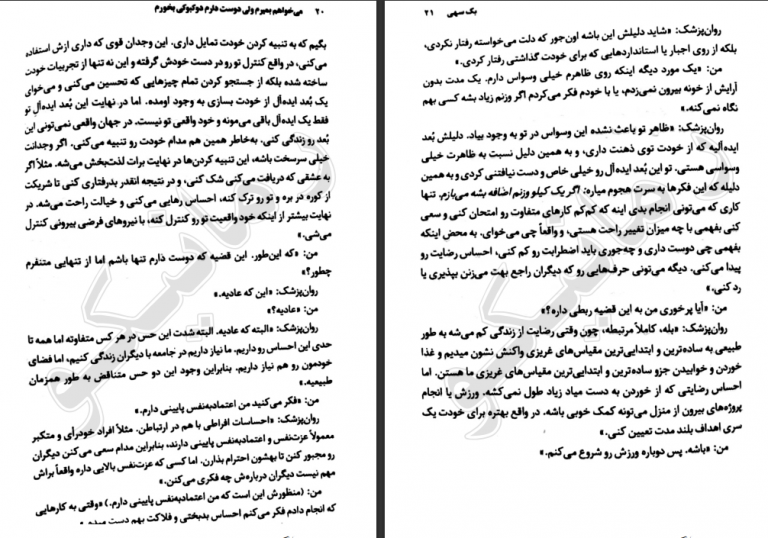 ۲۰ می‌خواهم بمیرم ولی دوست دارم دوکبوکی بخورم
بگیم که به تنبیه کردن خودت تمایل داری. این وجدان قوی که داری ازش استفاده
می‌کنی، در واقع کنترل تو رو در دست خودش گرفته و این نه تنها از تجربیات خودت
ساخته شده بلکه از جستجو کردن تمام چیزهایی که تحسین می‌کنی و می‌خوای
یک بُعد ایده‌آل از خودت بسازی به وجود اومده. اما در نهایت این بُعد ایده‌آلِ تو
فقط یک ایده‌آل باقی می‌مونه و خود واقعی تو نیست. در جهان واقعی نمی‌تونی این
بُعد رو زندگی کنی. به‌خاطر همین هم مدام خودت رو تنبیه می‌کنی. اگر وجدانت
خیلی سرسخت باشه، این تنبیه کردن‌ها در نهایت برات لذت‌بخش می‌شه. مثلاً اگر
به عشقی که دریافت می‌کنی شک کنی، و در نتیجه انقدر بدرفتاری کنی تا شریکت
از کوره در بره و تو رو ترک کنه، احساس رهایی می‌کنی و خیالت راحت می‌شه. در
نهایت بیشتر از اینکه خود واقعیت تو رو کنترل کنه، با نیروهای فرضی بیرونی کنترل
می‌شی.»
من: «که این‌طور. این قضیه که دوست دارم تنها باشم اما از تنهایی متنفرم
چطور؟»
روان‌پزشک: «این که عادیه.»
من: «عادیه؟»
روان‌پزشک: «البته که عادیه. البته شدت این حس در هر کس متفاوته اما همه تا
حدی این احساس رو داریم. ما نیاز داریم در جامعه با دیگران زندگی کنیم، اما فضای
خودمون رو هم نیاز داریم. بنابراین وجود این دو حس متناقض به طور همزمان
طبیعیه.»
من: «فکر می‌کنید من اعتمادبه‌نفس پایینی دارم.»
روان‌پزشک: «احساسات افراطی با هم در ارتباطن. مثلاً افراد خودرأی و متکبر
معمولاً عزت‌نفس و اعتمادبه‌نفس پایینی دارند، بنابراین مدام سعی می‌کنن دیگران
رو مجبور کنن تا بهشون احترام بذارن. اما کسی که عزت‌نفس بالایی داره واقعاً براش
مهم نیست دیگران درباره‌ش چه فکری می‌کنن.»
من: (منظورش این است که من اعتمادبه‌نفس پایینی دارم.) «وقتی به کارهایی
که انجام دادم فکر می‌کنم احساس بدبختی و فلاکت بهم دست میده.
بک سهی ۲۱
روان‌پزشک: «شاید دلیلش این باشه اون‌جور که دلت می‌خواسته رفتار نکردی،
بلکه از روی اجبار یا استانداردهایی که برای خودت گذاشتی رفتار کردی.»
من: «یک مورد دیگه اینکه روی ظاهرم خیلی وسواس دارم. یک مدت بدون
آرایش از خونه بیرون نمی‌زدم، یا با خودم فکر می‌کردم اگر وزنم زیاد بشه کسی بهم
نگاه نمی‌کنه.»
روان‌پزشک: «ظاهر تو باعث نشده این وسواس در تو به وجود بیاد. دلیلش بُعد
ایده‌آلیه که از خودت توی ذهنت داری، و به همین دلیل نسبت به ظاهرت خیلی
وسواسی هستی. تو این بُعد ایده‌آل رو خیلی خاص و دست نیافتنی کردی و به همین
دلیله که این فکرها به سرت هجوم میاره: اگر یک کیلو وزنم اضافه بشه می‌بازم. تنها
کاری که می‌تونی انجام بدی اینه که کم‌کم کارهای متفاوت رو امتحان کنی و سعی
کنی بفهمی با چه میزان تغییر راحت هستی، و واقعاً چی می‌خوای. به محض اینکه
بفهمی چی دوست داری و چه‌جوری باید اضطرابت رو کم کنی، احساس رضایت رو
پیدا می‌کنی. دیگه می‌تونی حرف‌هایی رو که دیگران راجع بهت می‌زنن بپذیری یا
رد کنی.»
من: «آیا پرخوری من به این قضیه ربطی داره؟»
روان‌پزشک: «بله، کاملاً مرتبطه، چون وقتی رضایت از زندگی کم می‌شه به طور
طبیعی به ساده‌ترین و ابتدایی‌ترین مقیاس‌های غریزی واکنش نشون میدیم و غذا
خوردن و خوابیدن جزو ساده‌ترین و ابتدایی‌ترین مقیاس‌های غریزی ما هستن. اما
احساس رضایتی که از خوردن به دست میاد زیاد طول نمی‌کشه. ورزش یا انجام
پروژه‌های بیرون از منزل می‌تونه کمک خوبی باشه. در واقع بهتره برای خودت یک
سری اهداف بلند مدت تعیین کنی.»
من: «باشه. پس دوباره ورزش رو شروع می‌کنم.»